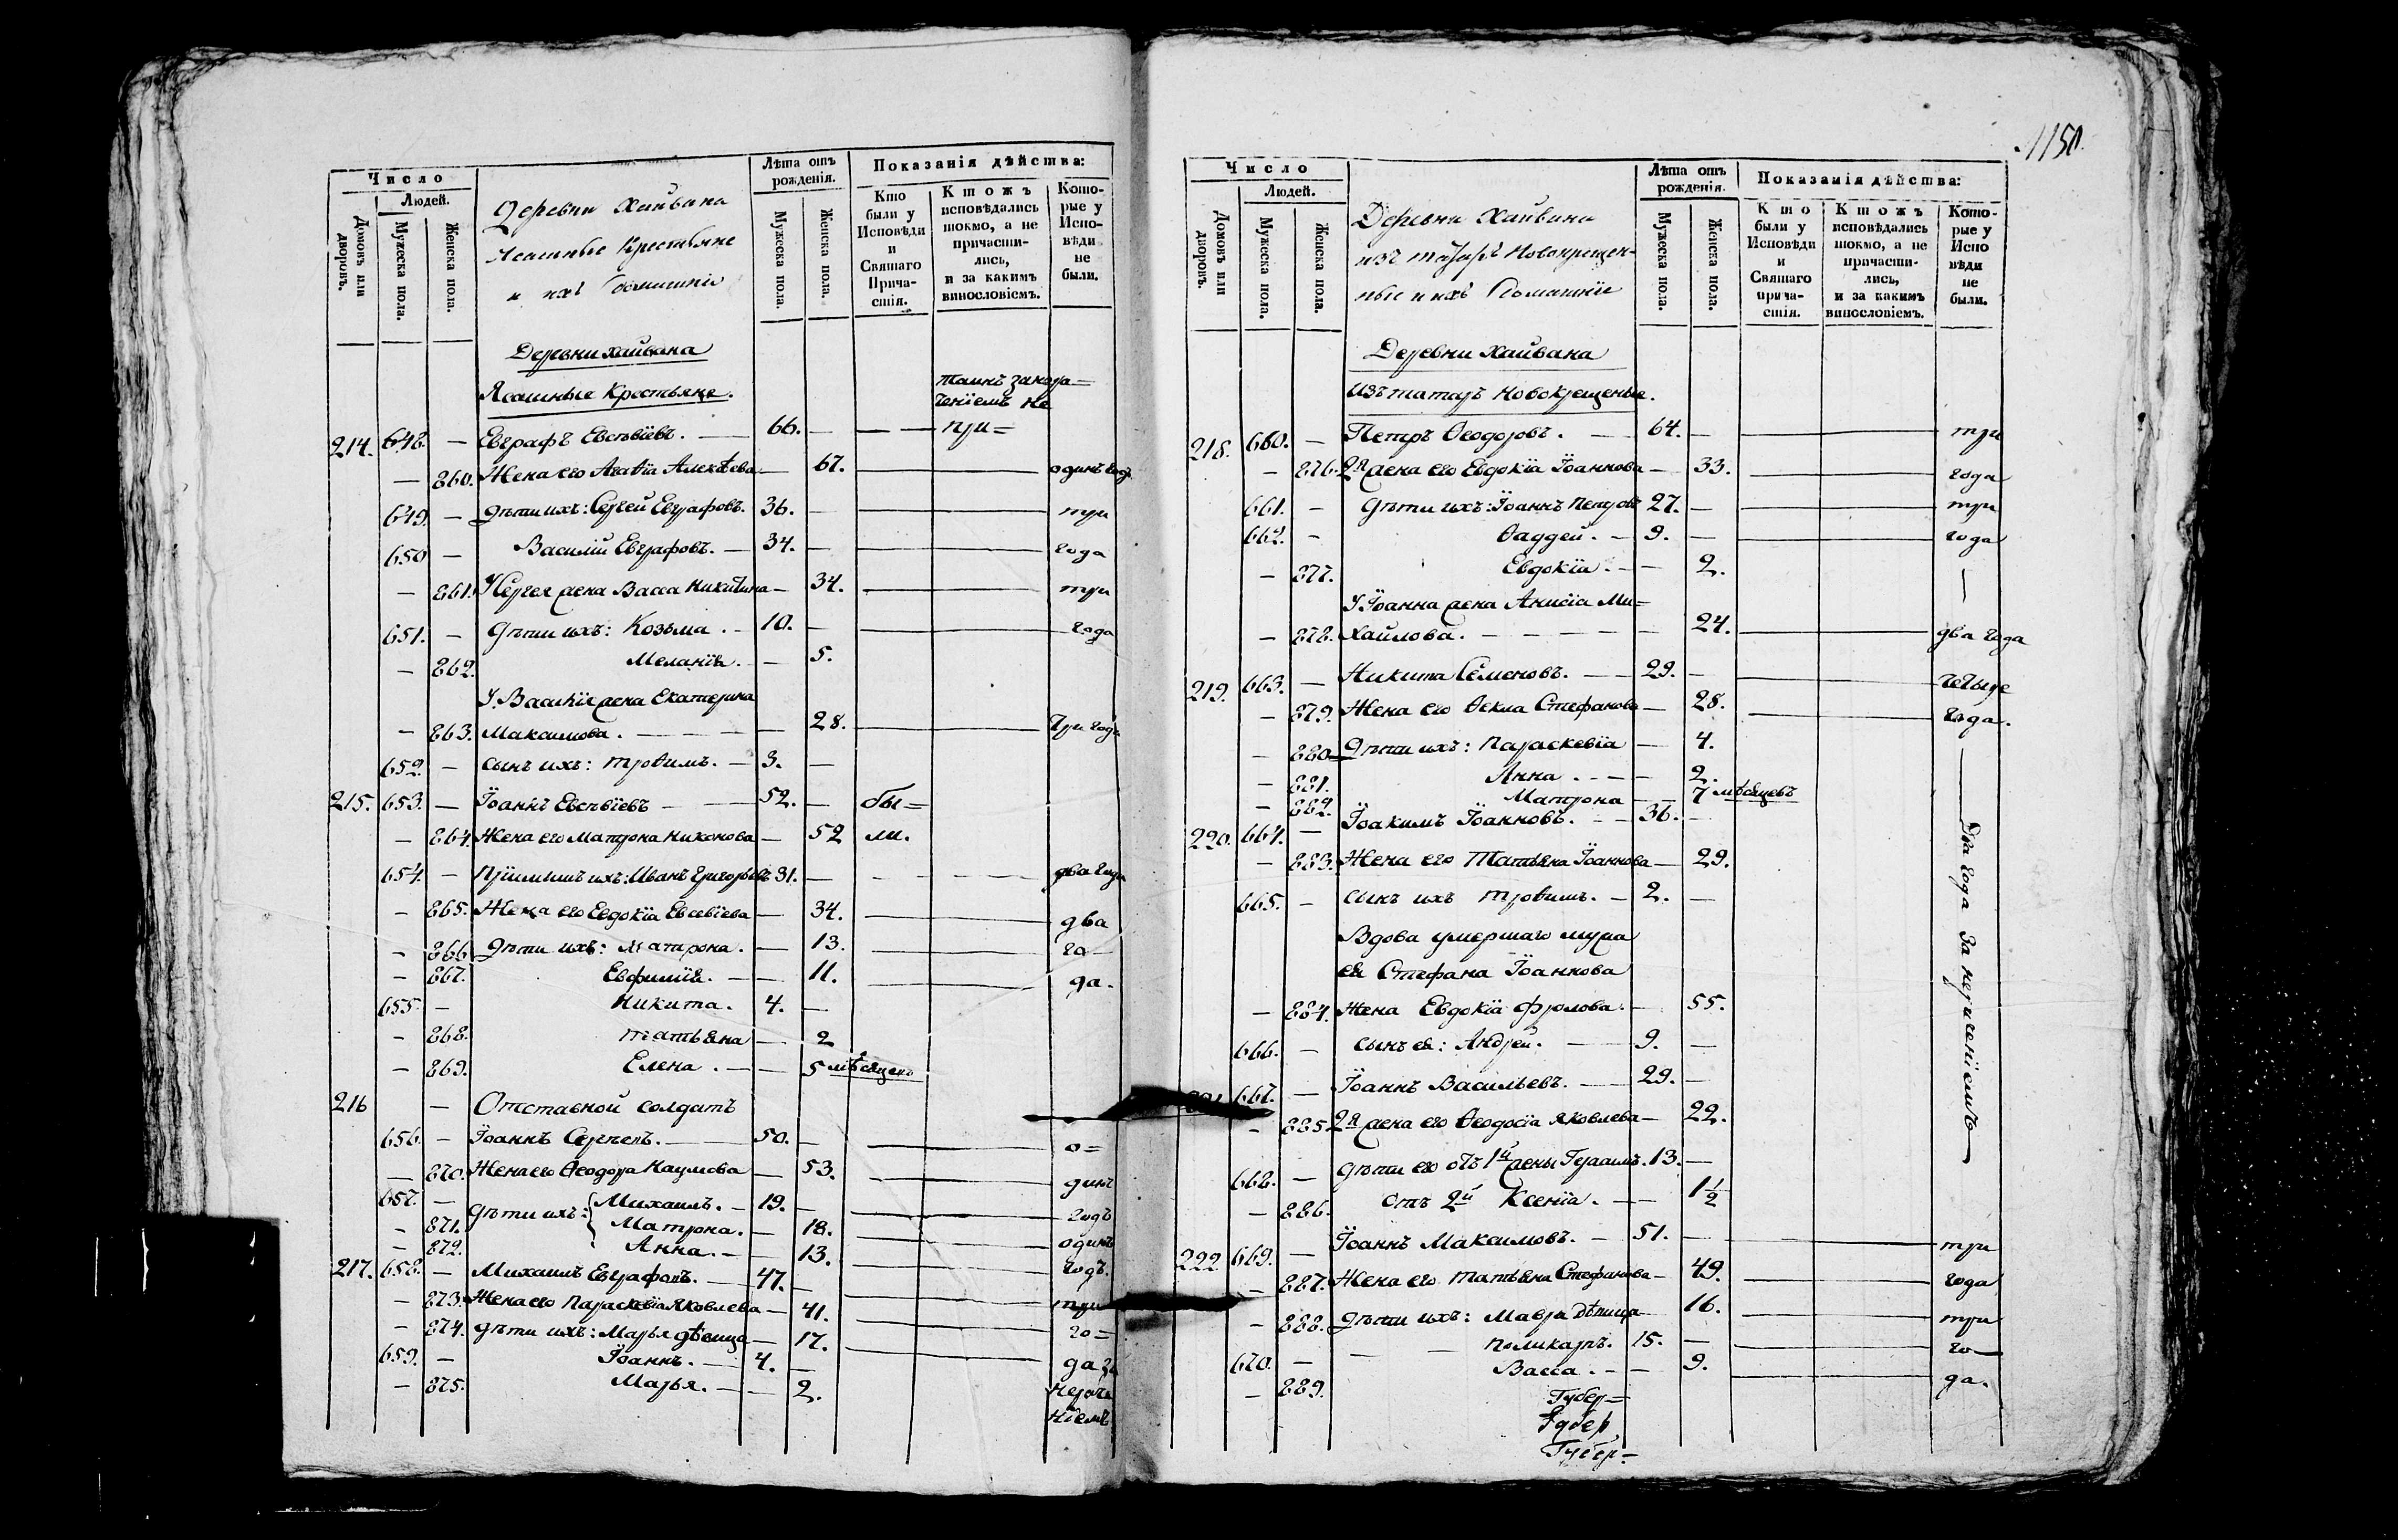 Число
Людей.
Домовъ или дворовъ.
Мужеска пола.
Женска пола.
Деревни Хайвана
Ясашные Крестьяне
и ихъ домашніе
Лѣта отъ рожденія.
Мужеска пола.
Женска пола.
Показанія дѣйства:
Кто были у Исповѣди и Святаго Прича-стія.
Ктожъ исповѣдались токмо, а не причасти-лись, и за какимъ винословіемъ.
Кото-рые у Испо-вѣди не были.
Деревни Хайвана
Ясашные Крестьяне.
214. 648. — Евграфъ Евсѣвіевъ. — 66. — при=
— 860. Жена его Агаѳіа Алекѣева — 67. одинъ годъ
649. — Дѣти ихъ: Сергей Евграфовъ. 36. — три
650 — Василій Евграфовъ. — 34. — года
— 861. У Сергея жена Васса Никитина — 34. три
651. — Дѣти ихъ: Козьма. — 10. — года
— 862. Меланіѧ. — 5.
У Василія жена Екатерина
— 863. Максимова. — 28. три года
652. — сынъ ихъ: Трофимъ. — 3. —
215. 653. — Іоаннъ Евсѣвіевъ — 52. — бы=
— 864. Жена его Матрона Никонова — 52 ли.
654. — Пріимышъ ихъ: Иванъ Григорьевъ 31. — два года
— 865. Жена его Евдокіа Евсевіева — 34. два
— 866 Дѣти ихъ: Матрона. — 13. го
— 867. Евфиміѧ. — 11. да.
655 — Никита. 4. —
— 868. Татьяна — 2
— 869. Елена. — 5 мѣсяцевъ
216 — Отставной солдатъ
656. — Іоаннъ Сергеевъ. — 50. — о=
— 870. Жена его Ѳеодора Наумова — 53. динъ
657. — Дѣти ихъ: Михаилъ. — 19. — годъ
— 871. Матрона. — 18. одинъ
— 872. Анна. — 13. годъ.
217. 658. — Михаилъ Евграфовъ. — 47. — три
— 873. Жена его Параскевіа Яковлева — 41. го=
— 874. Дѣти ихъ: Марья дѣвица — 17. да за
659. — Іоаннъ. — 4. — нераче
— 875. Марья. — 2. ніемъ
1150.
Число
Людей.
Домовъ или дворовъ.
Мужеска пола.
Женска пола.
Деревни Хайвана
изъ татаръ Новокрещен-
ные и ихъ домашніе
Лѣта отъ рожденія.
Мужеска пола.
Женска пола.
Показанія дѣйства:
Кто были у Исповѣди и Святаго прича-стія.
Ктожъ исповѣдались токмо, а не причасти-лись, и за какимъ винословіемъ.
Кото-рые у Испо вѣди не были.
Деревни Хайвана
Изъ татаръ Новокрещеные.
218. 660. — Петръ Ѳеодоровъ. — 64. — три
— 876. 2я жена его Евдокіа Іоаннова — 33. года
661. — Дѣти ихъ: Іоаннъ Петровъ 27. — три
662. — Ѳаддей. — 9. — года
— 877. Евдокіа. — 2. —
У Іоанна жена Анисіа Ми=
— 878. хайлова. — 24. два года
219. 663. — Никита Семеновъ. — 29. — четыре
— 879. Жена его Ѳекла Стефанова — 28. года.
— 880. Дѣти ихъ: Параскевіа — 4.
— 881. Анна. — 2.
— 882. Матрона — 7 мѣсяцевъ
220. 664. — Іоакимъ Іоанновъ. — 36. —
— 883. Жена его Татьяна Іоаннова — 29.
665. — сынъ ихъ Трофимъ. — 2. —
Вдова умершаго мужа
ея Стефана Іоаннова
— 884. жена Евдокіа Фролова. — 55.
666. — сынъ ея: Андрей. — 9. —
667. — Іоаннъ Васильевъ. — 29. —
— 885. 2я жена его Ѳеодосіа Яковлева — 22.
668. — дѣти его отъ 1й жены Герасимъ. 13. —
— 886. отъ 2й Ксеніа. — 1½
Два года за нераченіемъ
222. 669. — Іоаннъ Максимовъ. — 51. — три
— 887. Жена его Татьяна Стефанова — 49. года
— 888. Дѣти ихъ: Мавра дѣвица — 16. три
670. — Поликарпъ. 15. — го
— 889. Васса. — 9. да.
Губер=
Губер
Губер=